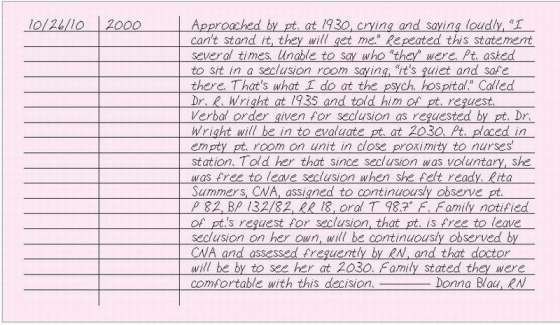 10/26/10 2000 Approached by pt. at 1930, crying and saying loudly, "I
can't stand it, they will get me." Repeated this statement
several times. Unable to say who "they" were. Pt. asked
to sit in a seclusion room saying, "it's quiet and safe
there. That's what I do at the psych. hospital." Called
Dr. R. Wright at 1935 and told him of pt. request.
Verbal order given for seclusion as requested by pt. Dr.
Wright will be in to evaluate pt. at 2030. Pt. placed in
empty pt. room on unit in close proximity to nurses'
station. Told her that since seclusion was voluntary, she
was free to leave seclusion when she felt ready. Rita
Summers, CNA, assigned to continuously observe pt.
P 82, BP 132/82, RR 18, oral T 98.7° F. Family notified
of pt.'s request for seclusion, that pt. is free to leave
seclusion on her own, will be continuously observed by
CNA and assessed frequently by RN, and that doctor
will be by to see her at 2030. Family stated they were
comfortable with this decision. ——— Donna Blau, RN